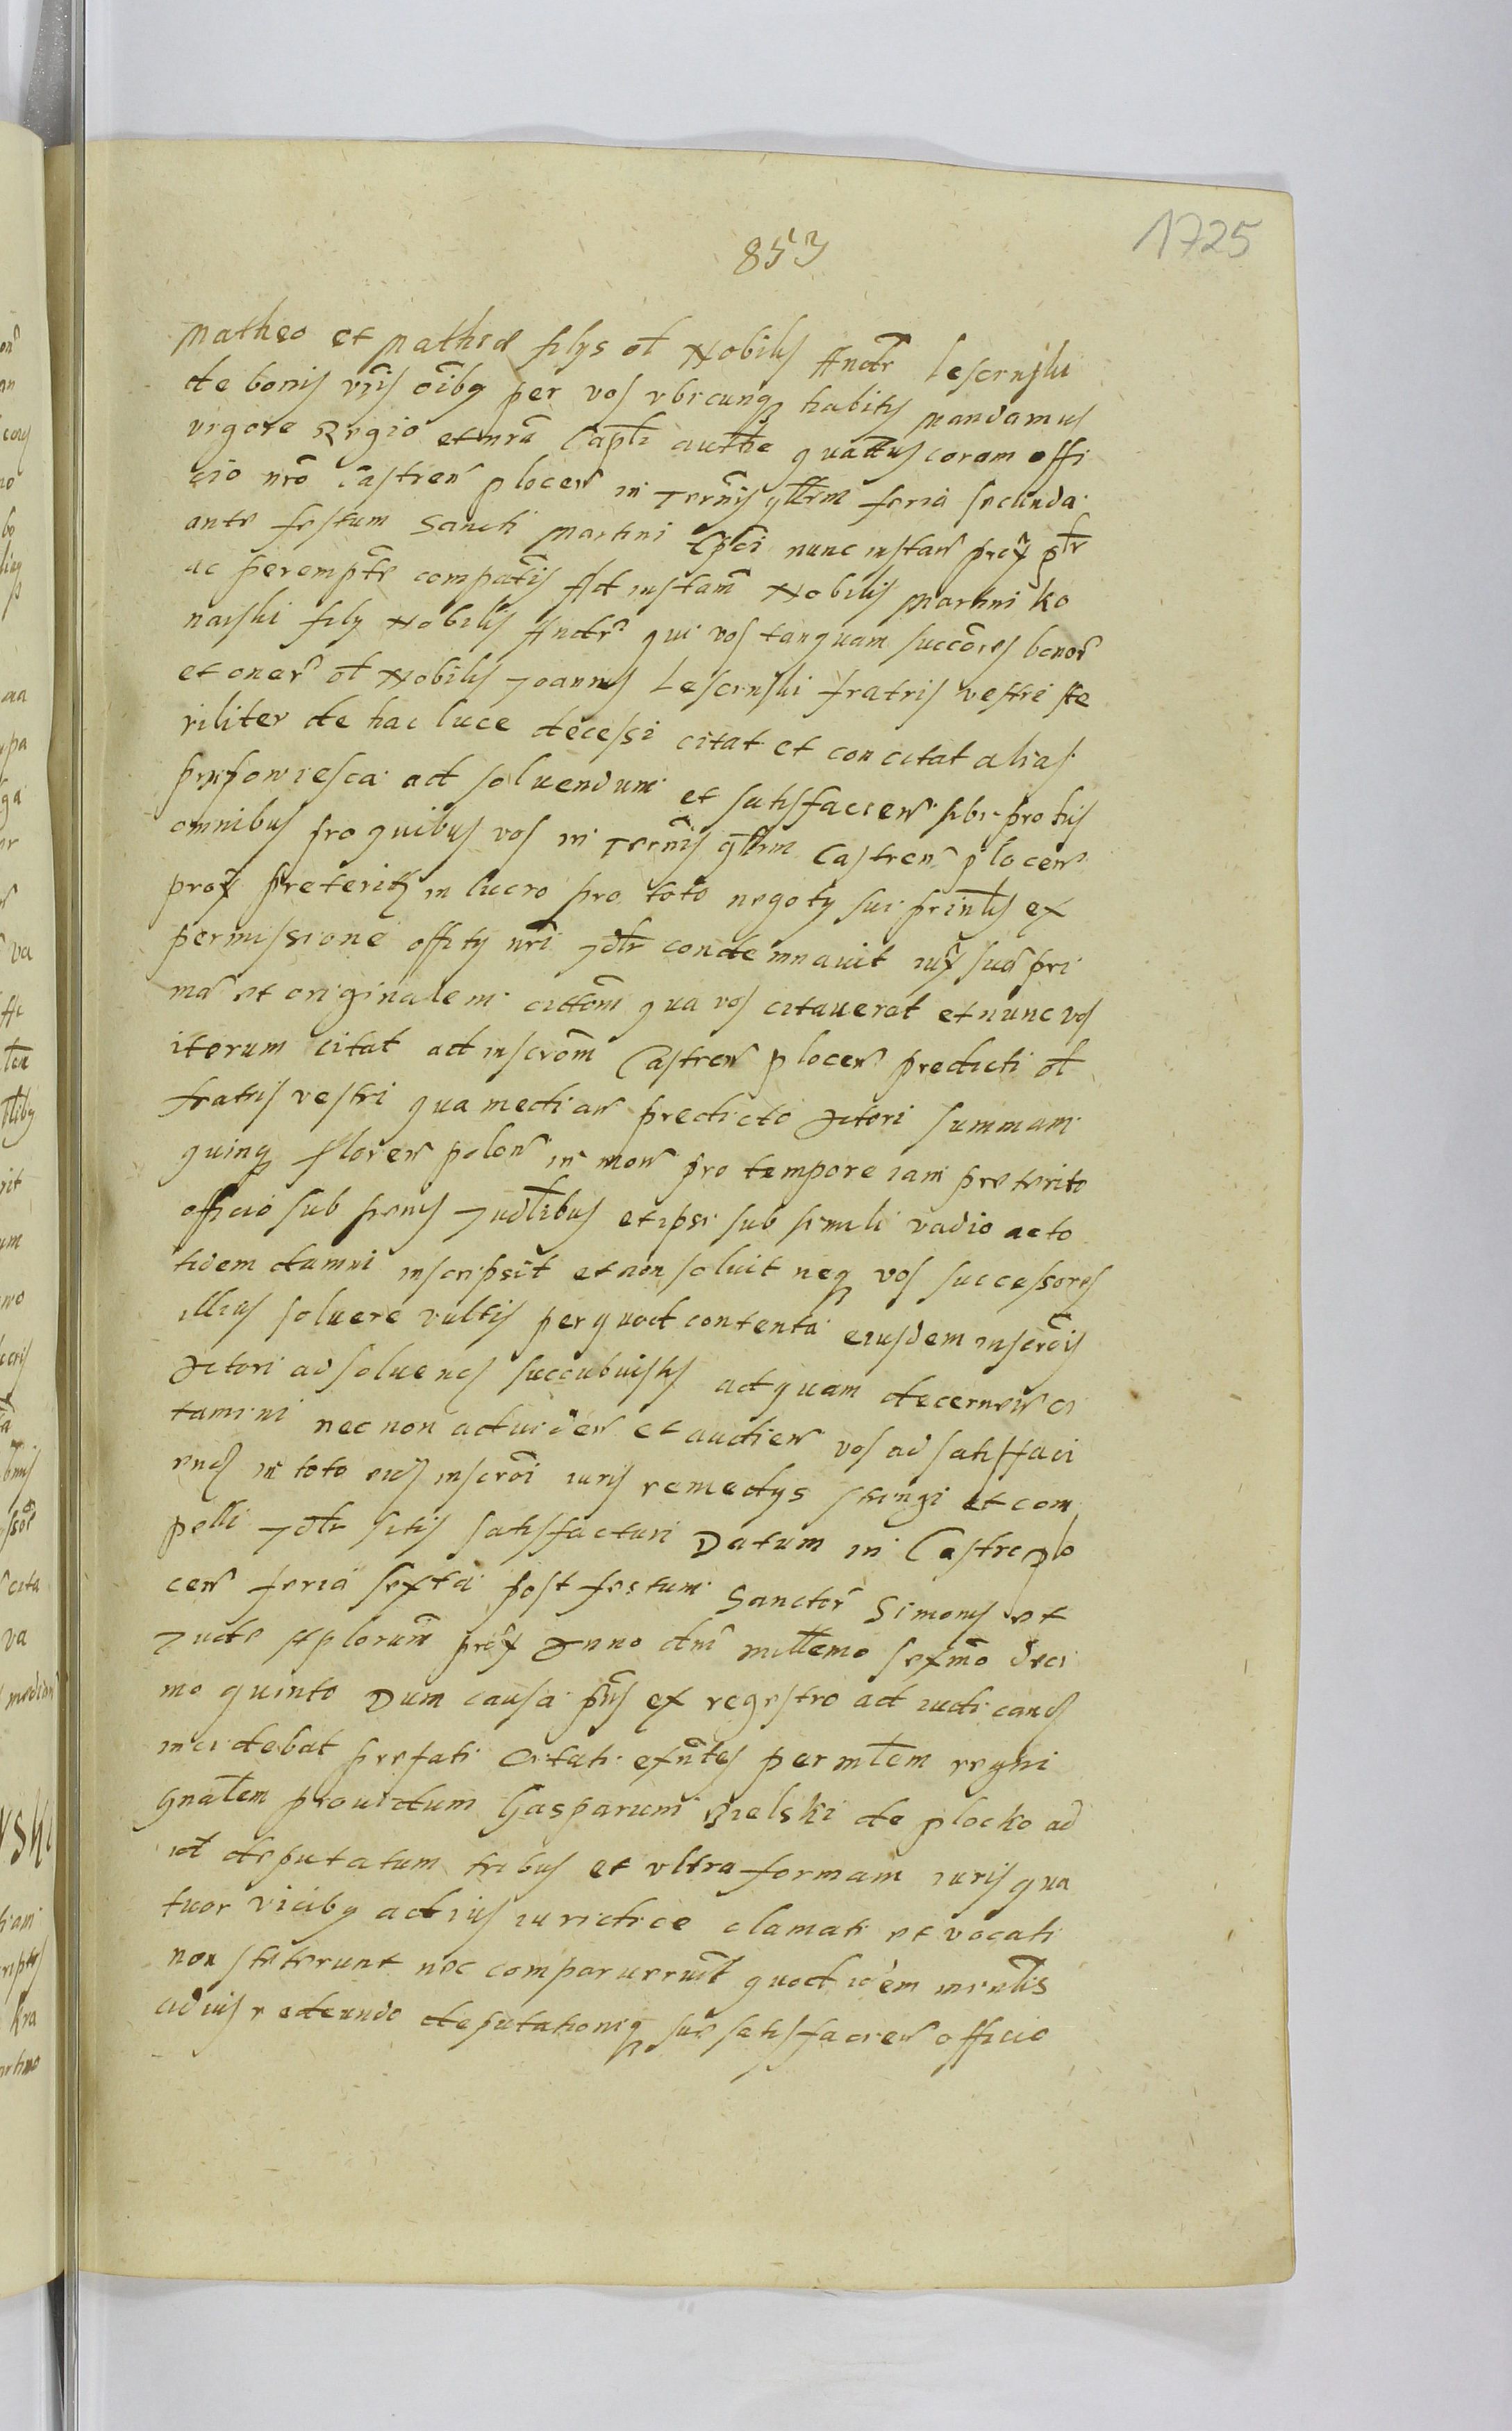 853
1725
Matheo et Mathiæ filys ol Nobilis Andr Lescinski
de bonis vris oibq per vos vbicunq habitis mandamus
vigore Regio et nrã Capli autthe quattus coram offi
cio nrõ Castren plocen in Termis qllrm feria secunda
ante festum Sancti Martini Epĩ nunc instan prox ptr
ac peremptr compatis Ad instam Nobilis Martini Ko
naiski fily Nobilis Andr qui vos tanquam succores bonor
et oner ol Nobilis Joannis Lescinski fratris vestri ste
riliter de hac luce decessi citat et concitat alias
przypowiesca ad soluendum et satisfacien sibi pro his
omnibus pro quibus vos in Termis qllrm Castren plocen
prox preteritis in lucro pro toto negoty sui prinlis ex
permissione offity nri Jdtr condemnauit iux suã pri
mã et originalem cittom qua vos citauerat et nunc vos
iterum citat ad inscrom Castren plocen predicti ol
fratris vestri qua median predicto Actori summam
quinq floren polon in mon pro tempore iam preterito
officio sub penis Judlibus et ipsi sub simili vadio ac to
tidem damni inscripsit et non soluit neq vos successores
illius soluere vultis per quod contenta eiusdem inscrois
Actori ad soluend succubuistis ad quam decernen ci
tamini nec non ad viden et audien vos ad satisfaci
end in toto eid inscroi iuris remedys stringi et com
pelli Jdtr sitis satisfacturi Datum in Castro plo
cen feria sexta post festum Sanctor Simonis et
Jude Aplorum prox Anno dni millemo sexmo deci
mo quinto Dum causa pns ex regestro ad iudicand
incidebat prefati Citati exntes per mlem regni
gnalem prouidum Gasparum Bielski de plocko ad
id deputatum tribus et vltra formam iuris qua
tuor vicibq ad ius iuridice clamati et vocati
non steterunt nec comparuerunt quod idem minlis
ad ius redeundo deputationiq suæ satisfacien officio